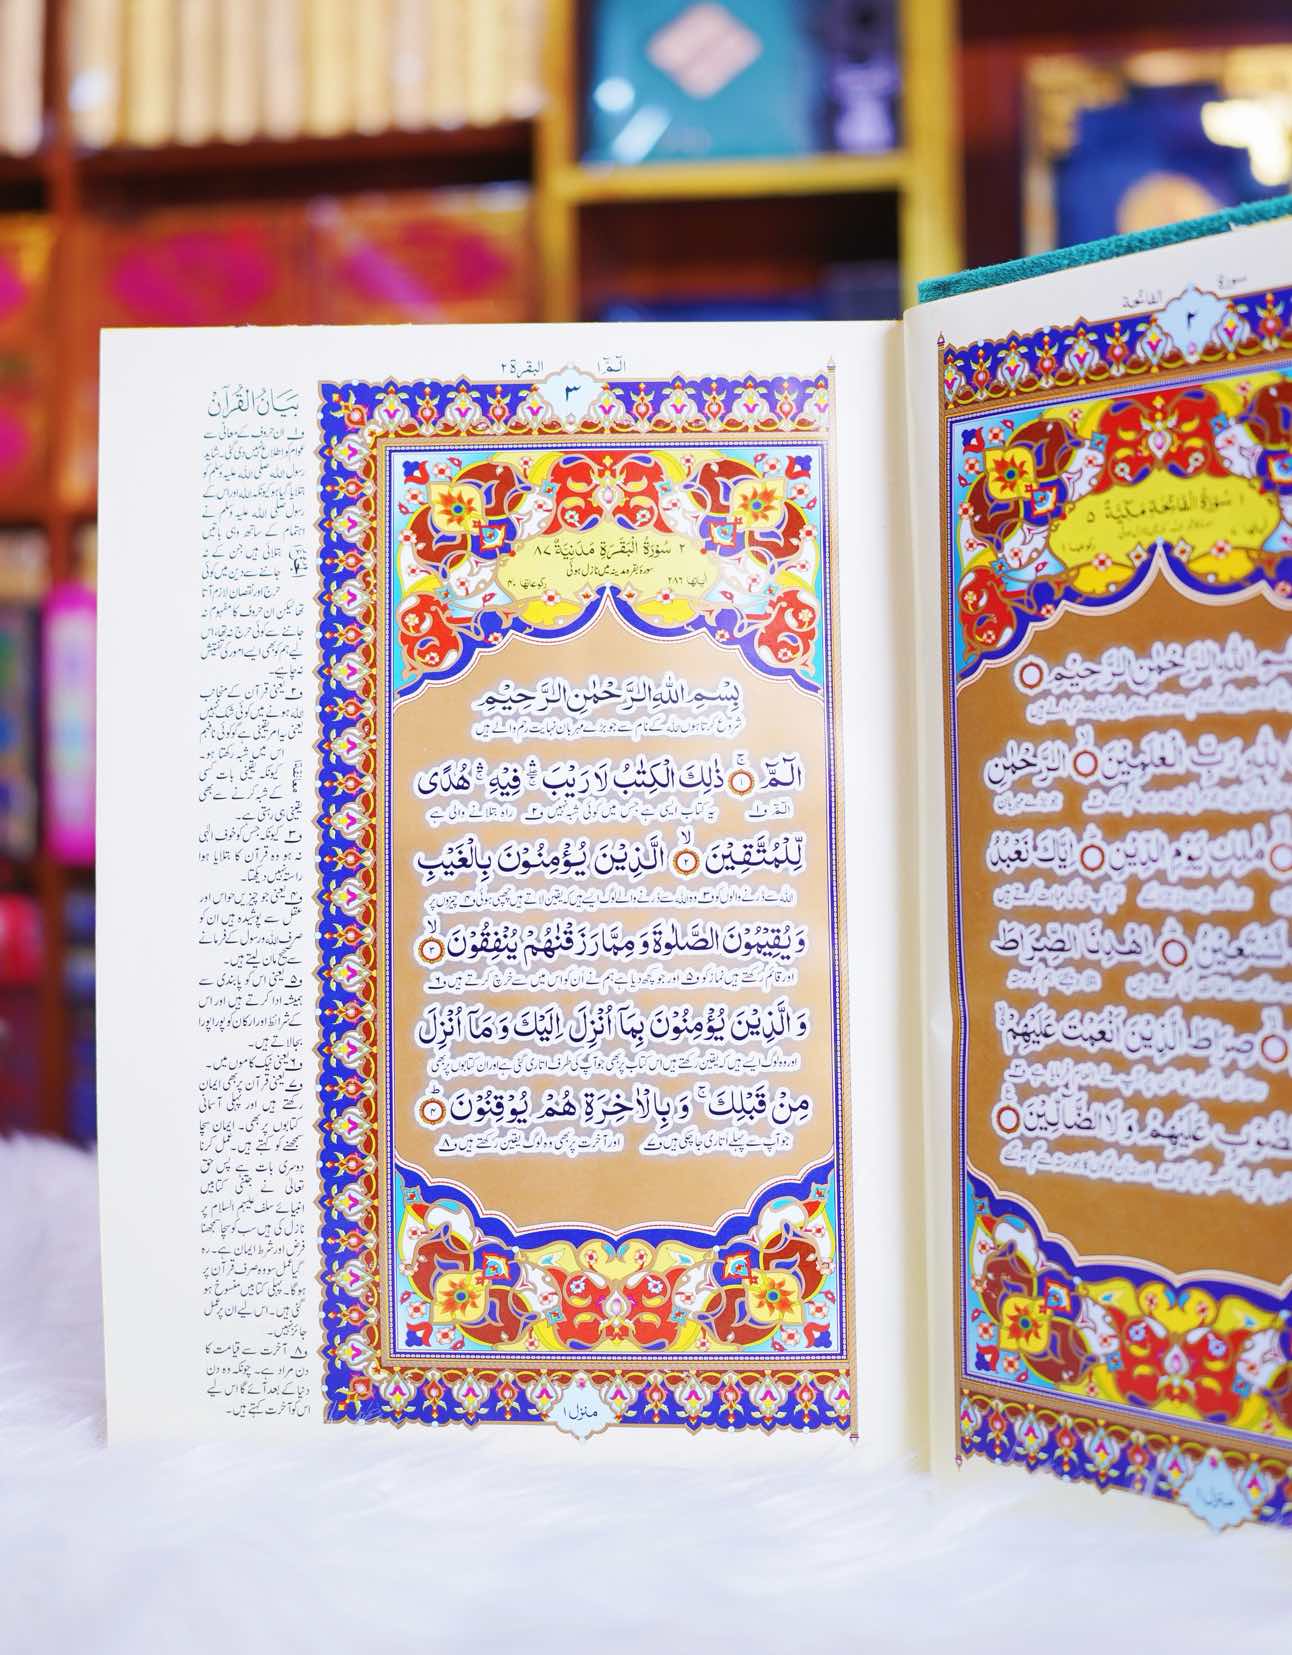 سورة الفاتحة
٢
١ سُوْرَةُ الْفَاتِحَةِ مَكِّيَّةٌ ٥
اللهِ الرَّحْمٰنِ الرَّحِيْمِ
رَبِّ الْعٰلَمِيْنَ الرَّحْمٰنِ
مٰلِكِ يَوْمِ الدِّيْنِ اِيَّاكَ نَعْبُدُ
اِهْدِنَا الصِّرَاطَ
صِرَاطَ الَّذِيْنَ اَنْعَمْتَ عَلَيْهِمْ
عَلَيْهِمْ وَلَا الضَّآلِّيْنَ
الٓمّٓ ١ البقرة ٢
٣
٢ سُوْرَةُ الْبَقَرَةِ مَدَنِيَّةٌ ٨٧
سورۂ بقرہ مدینہ میں نازل ہوئی
اٰیاتھا ٢٨٦ رکوعاتھا ٤٠
بِسْمِ اللهِ الرَّحْمٰنِ الرَّحِيْمِ
شروع کرتا ہوں اللہ کے نام سے جو بڑے مہربان نہایت رحم والے ہیں
الٓمّٓ ۚ ١ ذٰلِكَ الْكِتٰبُ لَا رَيْبَ ۛ فِيْهِ ۛ هُدًى
الٓمّٓ ف۱ یہ کتاب ایسی ہے جس میں کوئی شبہ نہیں ف۲ راہ بتلانے والی ہے
لِّلْمُتَّقِيْنَ ۙ ٢ الَّذِيْنَ يُؤْمِنُوْنَ بِالْغَيْبِ
اللہ سے ڈرنے والوں کو ف۳ وہ اللہ سے ڈرنے والے لوگ ایسے ہیں کہ یقین لاتے ہیں چھپی ہوئی ف۴ چیزوں پر
وَيُقِيْمُوْنَ الصَّلٰوةَ وَمِمَّا رَزَقْنٰهُمْ يُنْفِقُوْنَ ۙ ٣
اور قائم رکھتے ہیں نماز کو ف۵ اور جو کچھ دیا ہے ہم نے اُن کو اس میں سے خرچ کرتے ہیں ف۶
وَالَّذِيْنَ يُؤْمِنُوْنَ بِمَآ اُنْزِلَ اِلَيْكَ وَمَآ اُنْزِلَ
اور وہ لوگ ایسے ہیں کہ یقین رکھتے ہیں اس کتاب پر بھی جو آپ کی طرف اتاری گئی ہے اور ان کتابوں پر بھی
مِنْ قَبْلِكَ ۚ وَبِالْاٰخِرَةِ هُمْ يُوْقِنُوْنَ ؕ ٤
جو آپ سے پہلے اتاری جا چکی ہیں ف۷ اور آخرت پر بھی وہ لوگ یقین رکھتے ہیں ف۸
منزل ١
بَيَانُ الْقُرْآن
ف۱ ان حروف کے معانی سے
عوام کو اطلاع نہیں دی گئی۔ شاید
رسول اللہ صلی اللہ علیہ وسلم کو
بتلایا گیا ہو کیونکہ اللہ اور اس کے
رسول صلی اللہ علیہ وسلم نے
اہتمام کے ساتھ وہی باتیں
بتلائی ہیں جن کے نہ
جاننے سے دین میں کوئی
حرج اور نقصان لازم آتا
تھا لیکن ان حروف کا مفہوم نہ
جاننے سے کوئی حرج نہ تھا، اس
لیے ہم کو بھی ایسے امور کی تفتیش
نہ چاہیے۔
ف۲ یعنی قرآن کے منجانب
اللہ ہونے میں کوئی شک نہیں
یعنی یہ امر یقینی ہے گو کوئی نافہم
اس میں شبہ رکھتا ہو۔
کیونکہ یقینی بات کسی
کے شبہ کرنے سے بھی
یقینی ہی رہتی ہے۔
ف۳ کیونکہ جس کو خوف الٰہی
نہ ہو وہ قرآن کا بتلایا ہوا
راستہ نہیں دیکھتا۔
ف۴ یعنی جو چیزیں حواس اور
عقل سے پوشیدہ ہیں ان کو
صرف اللہ و رسول کے فرمانے
سے صحیح مان لیتے ہیں۔
ف۵ یعنی اس کو پابندی سے
ہمیشہ ادا کرتے ہیں اور اس
کے شرائط اور ارکان کو پورا پورا
بجا لاتے ہیں۔
ف۶ یعنی نیک کاموں میں۔
ف۷ یعنی قرآن پر بھی ایمان
رکھتے ہیں اور پہلی آسمانی
کتابوں پر بھی۔ ایمان سچا
سمجھنے کو کہتے ہیں۔ عمل کرنا
دوسری بات ہے پس حق
تعالیٰ نے جتنی کتابیں
انبیائے سلف علیہم السلام پر
نازل کی ہیں سب کو سچا سمجھنا
فرض اور شرط ایمان ہے۔ رہ
گیا عمل سو وہ صرف قرآن پر
ہوگا۔ پہلی کتابیں منسوخ ہو
گئی ہیں۔ اس لیے ان پر عمل
جائز نہیں۔
ف۸ آخرت سے قیامت کا
دن مراد ہے۔ چونکہ وہ دن
دنیا کے بعد آئے گا اس لیے
اس کو آخرت کہتے ہیں۔